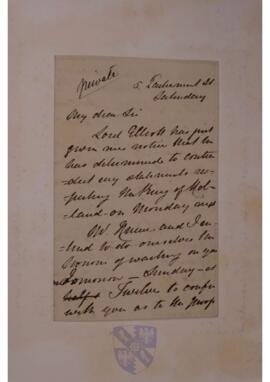 Private
5 Parliament St
Saturday
My dear Sir
Lord Elliott has just
given me notice that he
has determined to contra
-dict my statements re
-pecting the Ray of Hol
-land on Monday next
Mr and I in
-tend to do ourselves the
honor of waiting on you
Tomorrow - Sunday - at
Twelve to confer
with you as to the